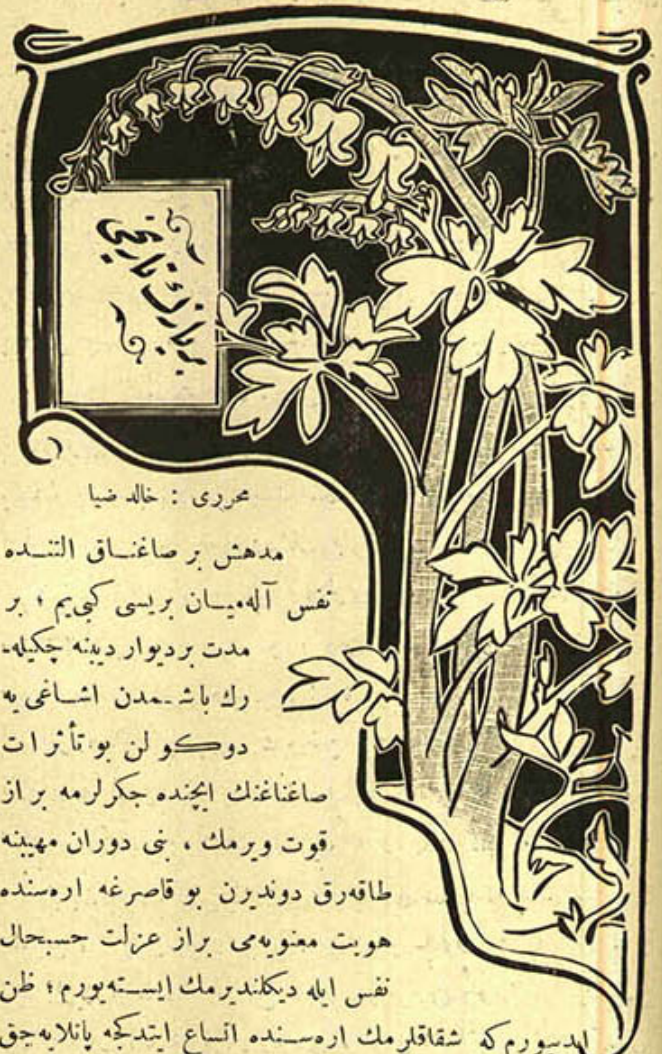 بر يازك تاريخى
محررى : خالد ضيا
مدهش بر صاغنــاق التنــده
نفس آله‌ميــان بريسى كبى‌يم ؛ بر
مدت برديوار ديبنه چكيله‌
رك باشــمدن اشــاغى يه
دوكــو لن بو تأثرات
صاغناغنك ايچنده جكرلرمه بر از
قوت ويرمك ، بنى دوران مهيبنه
طاقه‌رق دونديرن بو قاصرغه اره‌سنده
هويت معنويه‌مى براز عزلت حسبحال
نفس ايله ديكلنديرمك ايســته‌يورم ؛ ظن
ايدييورم كه شقاقلرمك اره‌ســنده اتساع ايتدكجه پاتلايه‌جق